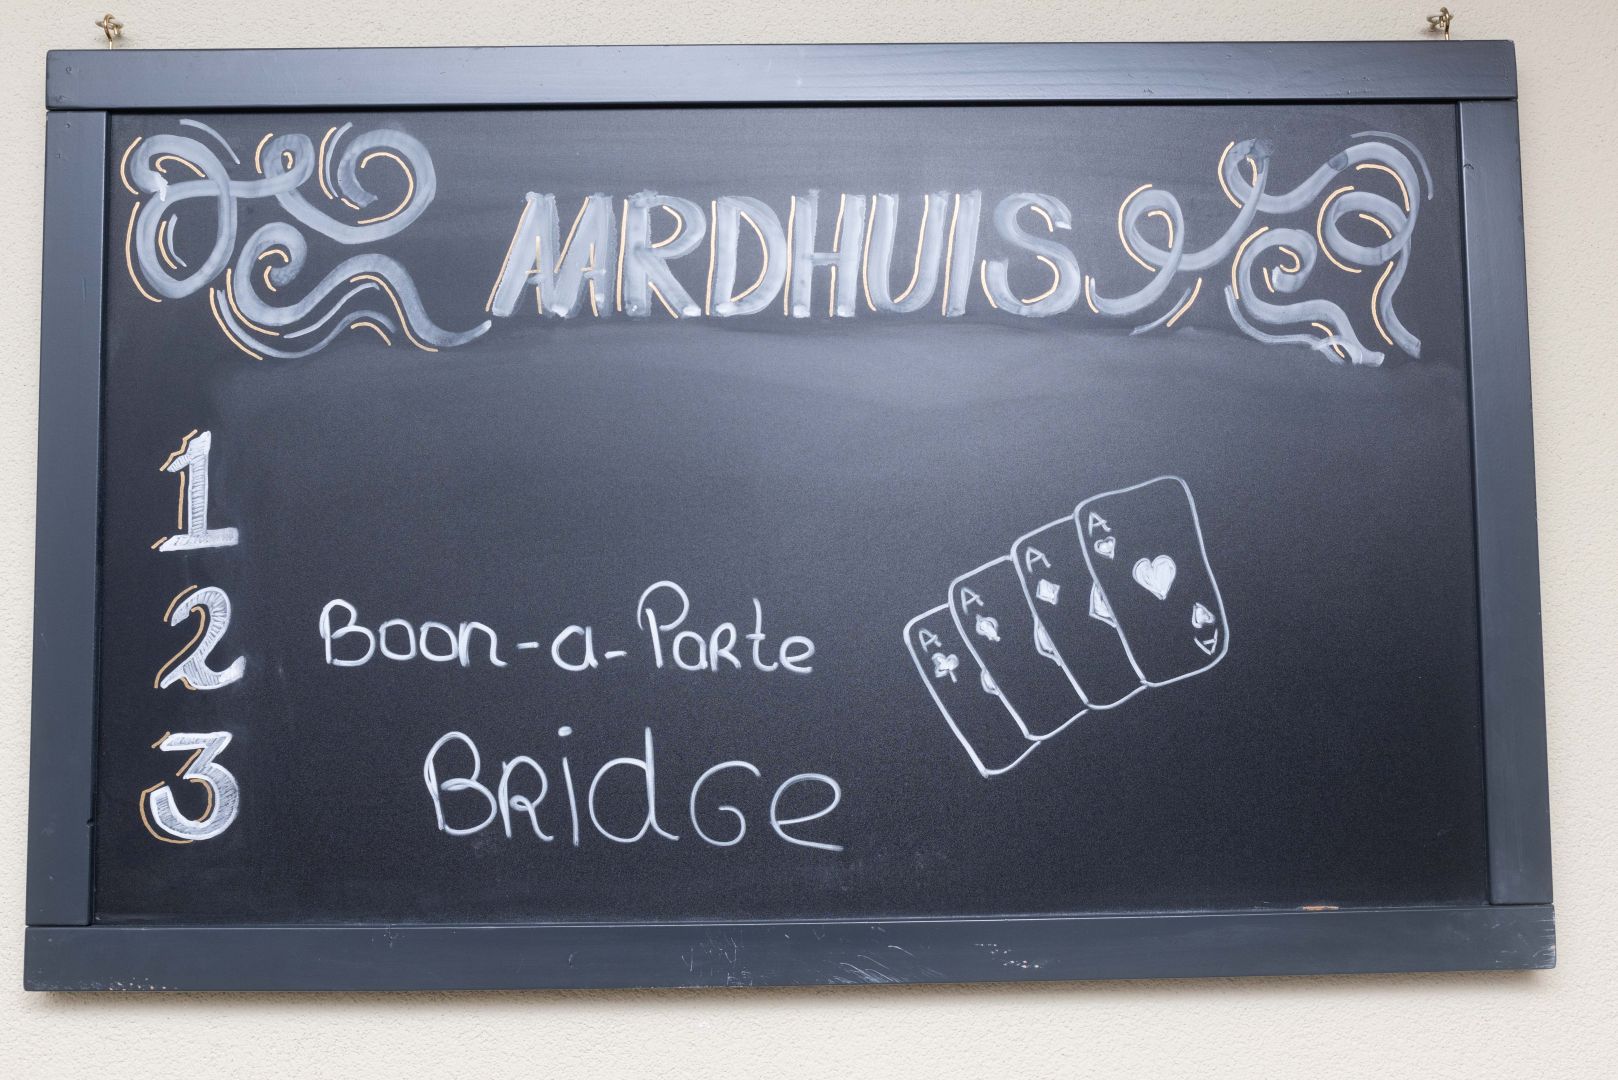 AARDHUIS
1
2 Boon-a-Parte
3 Bridge
A
A
A
A
A